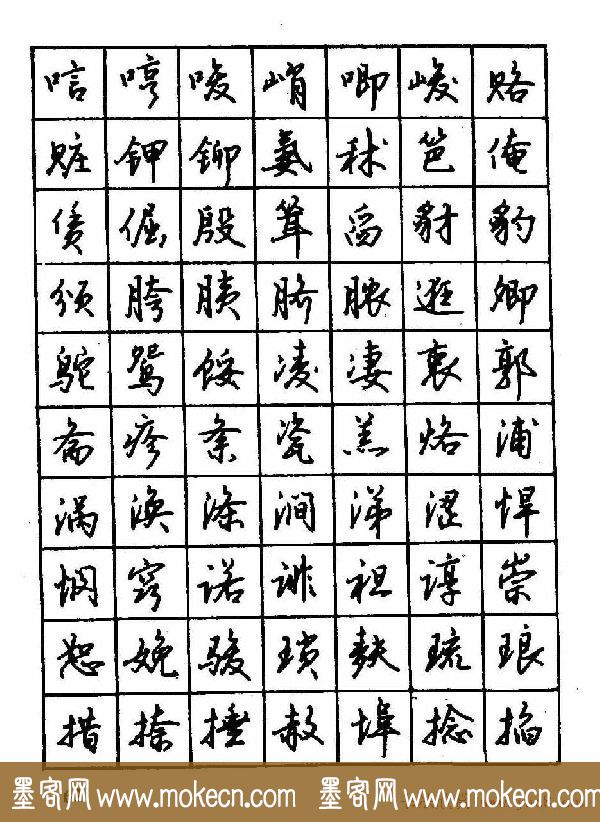 唁哼唆峭唧峻赂
赃钾铆氨秫笆俺
赁倔殷耸舀豺豹
颁胯胰脐脓逛卿
鸵鸳馁凌凄衷郭
斋疹紊瓷羔烙浦
涡涣涤涧涕涩悍
悯窍诺诽袒谆祟
恕娩骏琐麸琉琅
措捺捶赦埠捻掐
墨客网 www.mokecn.com 墨客网 www.mokecn.com